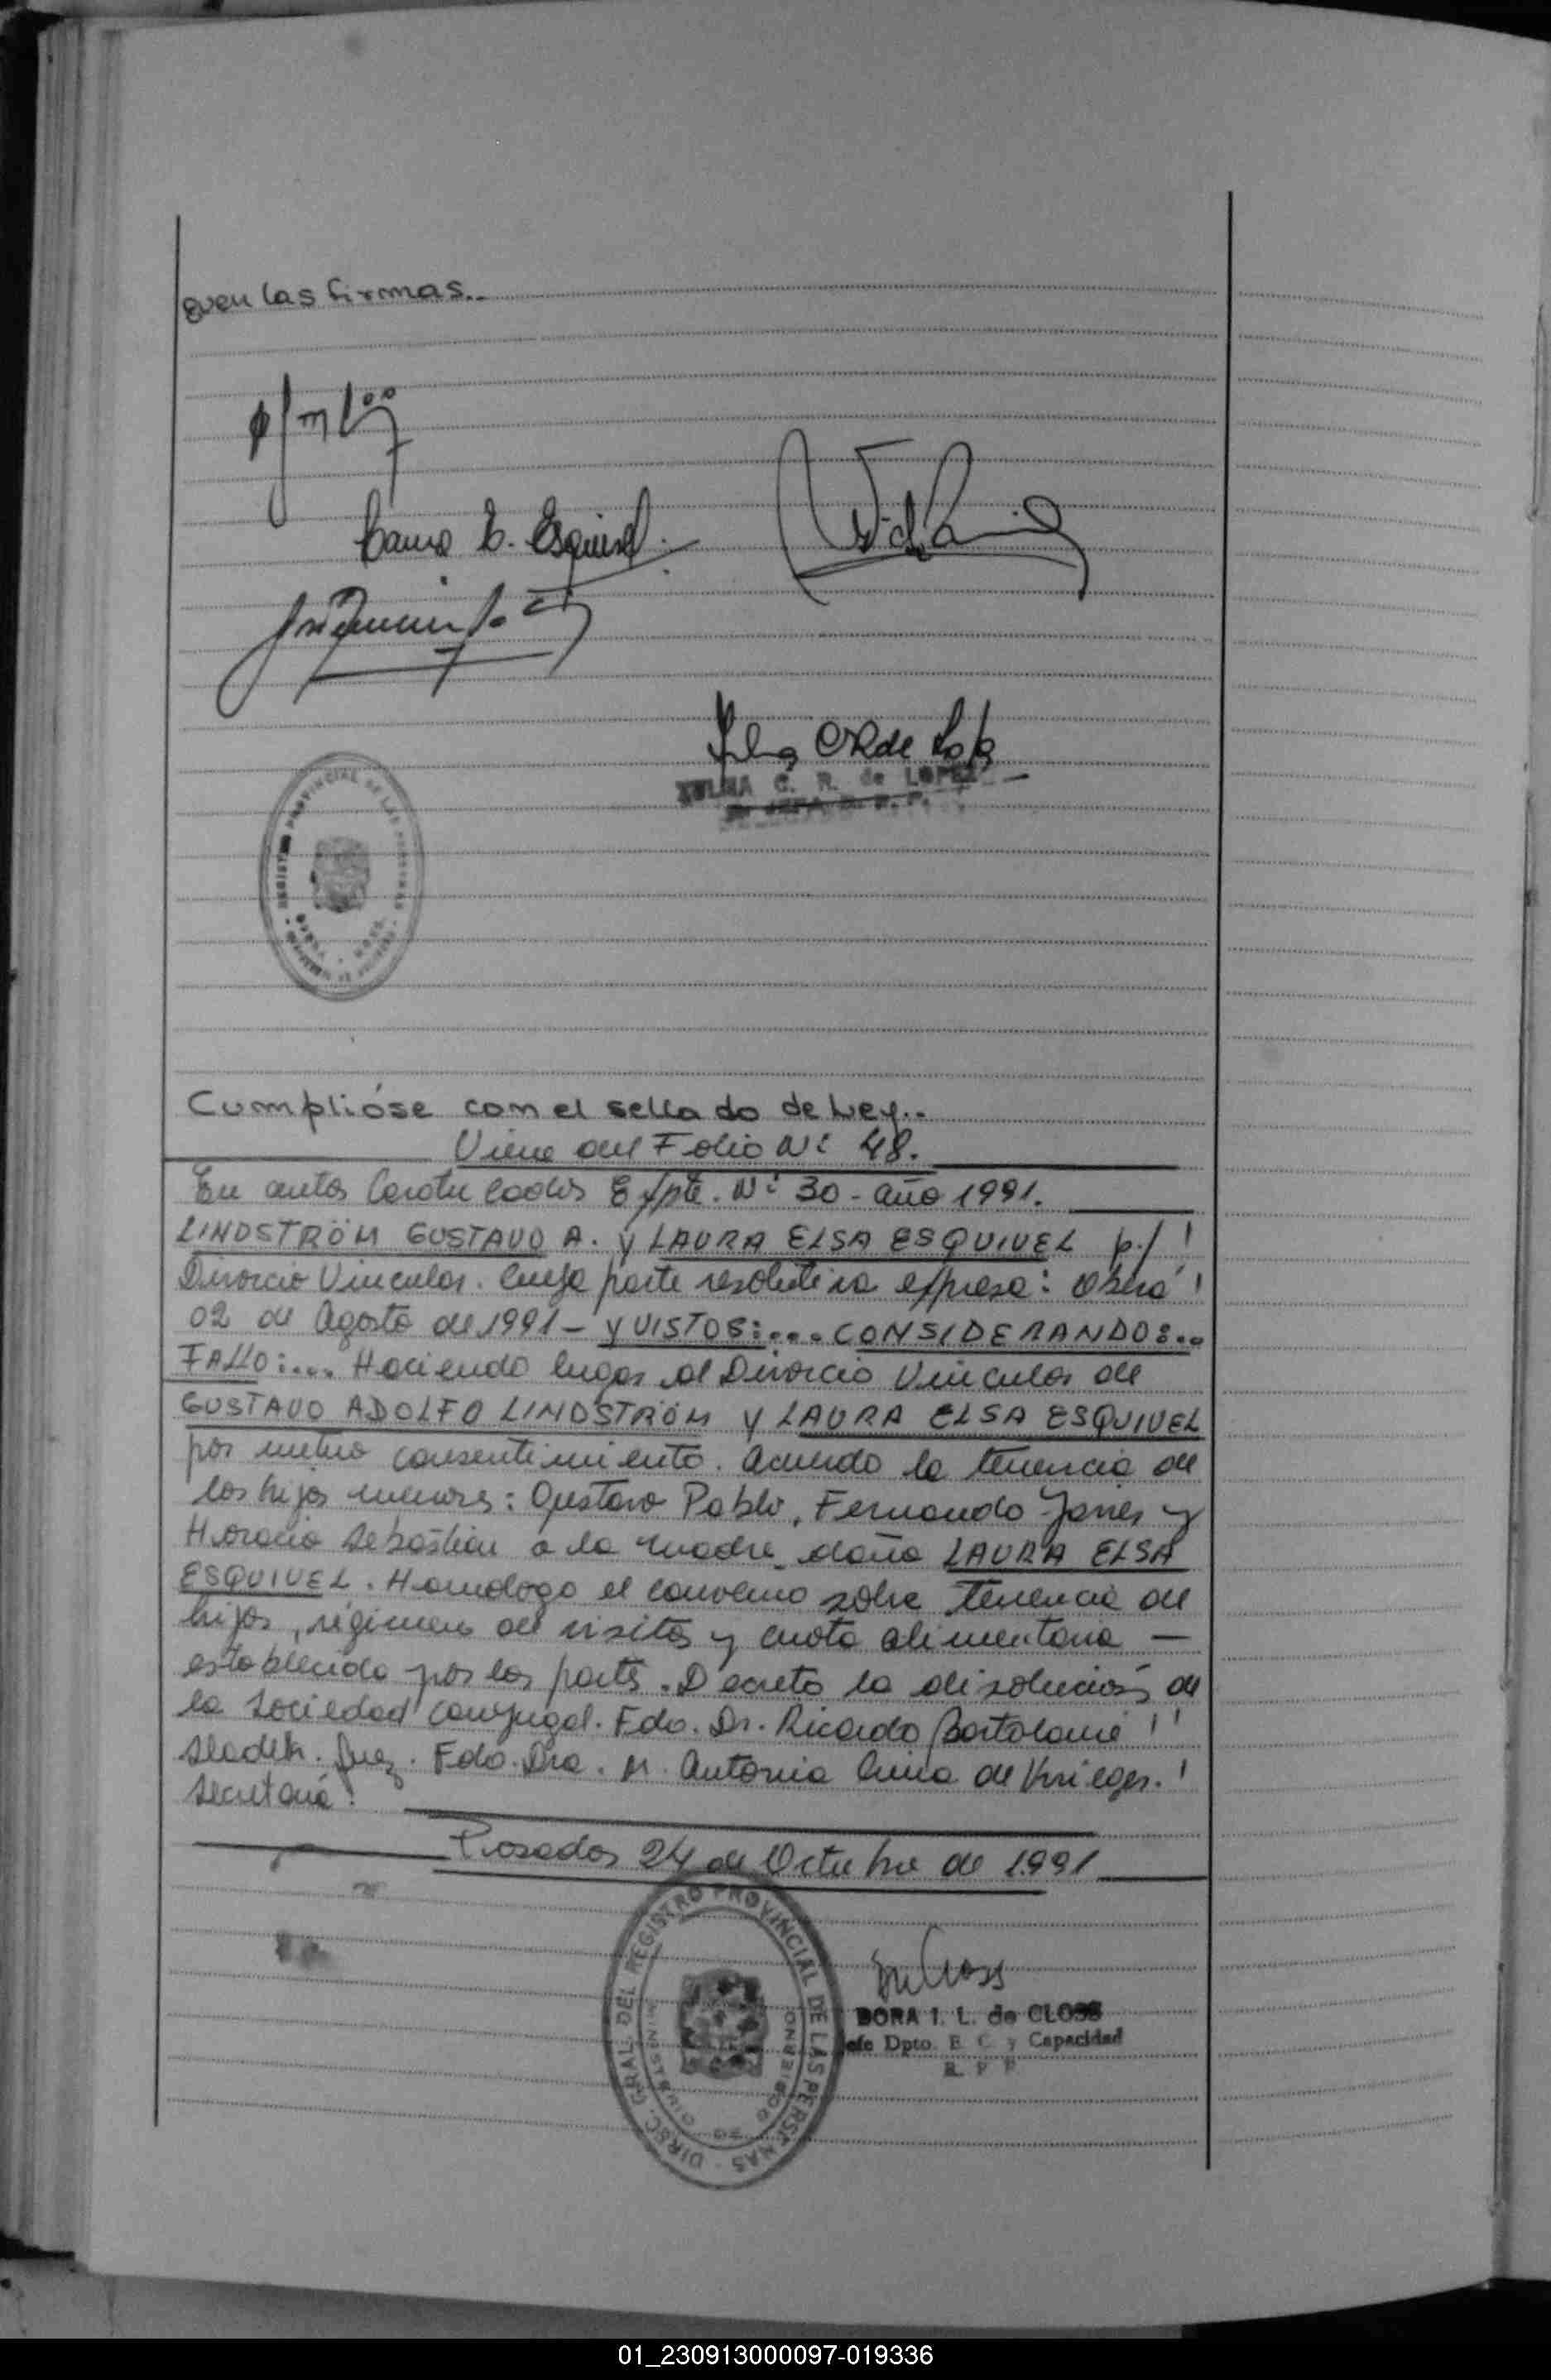 guen las firmas..
Laura E. Esquivel.
ZULMA C. R. de LOPEZ
Cumplióse con el sellado de Ley..
Viene del Folio Nº 48.
En autos Caratulados Expte. Nº 30 - año 1991.
LINDSTRÖM GUSTAVO A. y LAURA ELSA ESQUIVEL p./
Divorcio Vincular. Cuya parte resolutiva expresa: Oberá
02 de Agosto de 1991 - y VISTOS:... CONSIDERANDO:..
FALLO:... Haciendo lugar al Divorcio Vincular de
GUSTAVO ADOLFO LINDSTRÖM y LAURA ELSA ESQUIVEL
por mutuo consentimiento. Acuerdo la tenencia de
los hijos menores: Gustavo Pablo, Fernando Javier y
Horacio Sebastian a la madre doña LAURA ELSA
ESQUIVEL. Homologo el convenio sobre tenencia de
hijos, régimen de visitas y cuota alimentaria —
establecido por las partes. Decreto la disolución de
la sociedad conyugal. Fdo. Dr. Ricardo Bartolomé
Juez. Fdo. Dra. M. Antonia de Krieger.
Secretaria.
Posadas 24 de Octubre de 1991
DIREC. GRAL. DEL REGISTRO PROVINCIAL DE LAS PERSONAS
MINISTERIO DE GOBIERNO
DORA I. L. de CLOSS
Jefe Dpto. E. C. y Capacidad
R. P. P.
01_230913000097-019336